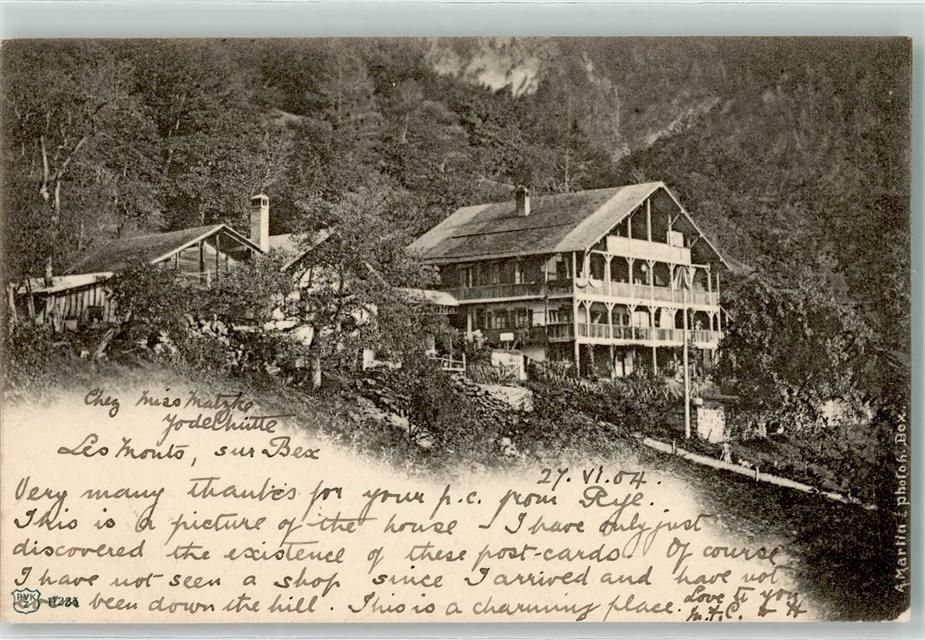 Chez Miss Matzke
Jodelhütte
Les Monts, sur Bex
27. VI. 04.
Very many thanks for your p.c. from Rye.
This is a picture of the house - I have only just
discovered the existence of these post-cards. Of course
I have not seen a shop since I arrived and have not
been down the hill. This is a charming place.
Love to you
A. Martin - photoh. Bex
PVK
Z